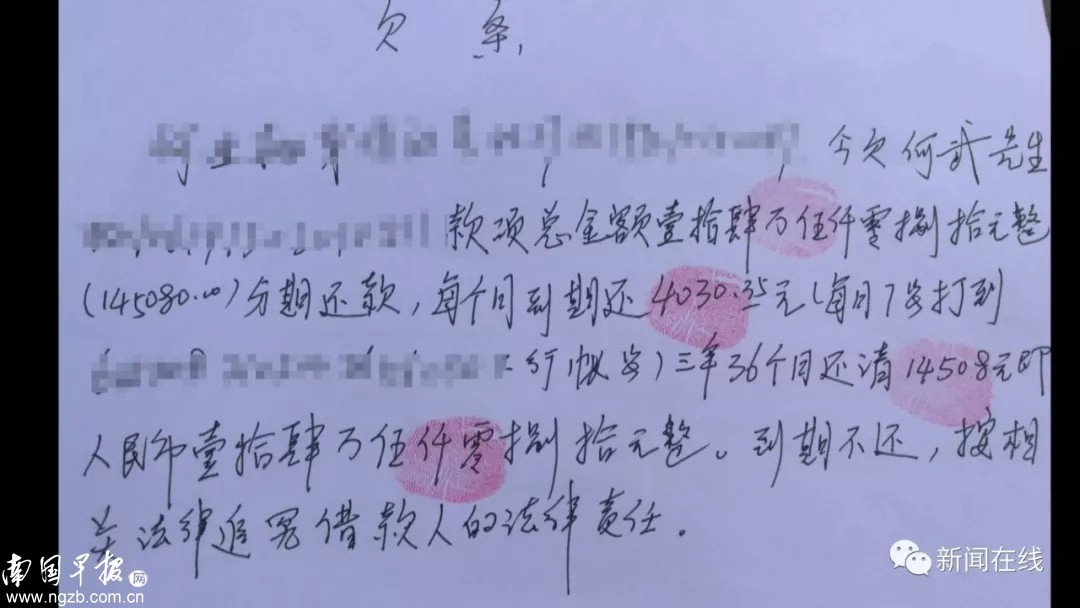 欠 条
今欠何武先生
款项总金额壹拾肆万伍仟零捌拾元整
(145080.00)分期还款,每个月到期还4030.35元(每月7号打到
行帐号)三年36个月还请14508元即
人民币壹拾肆万伍仟零捌拾元整。到期不还,按相
关法律追究借款人的法律责任。
南国早报网
www.ngzb.com.cn
新闻在线